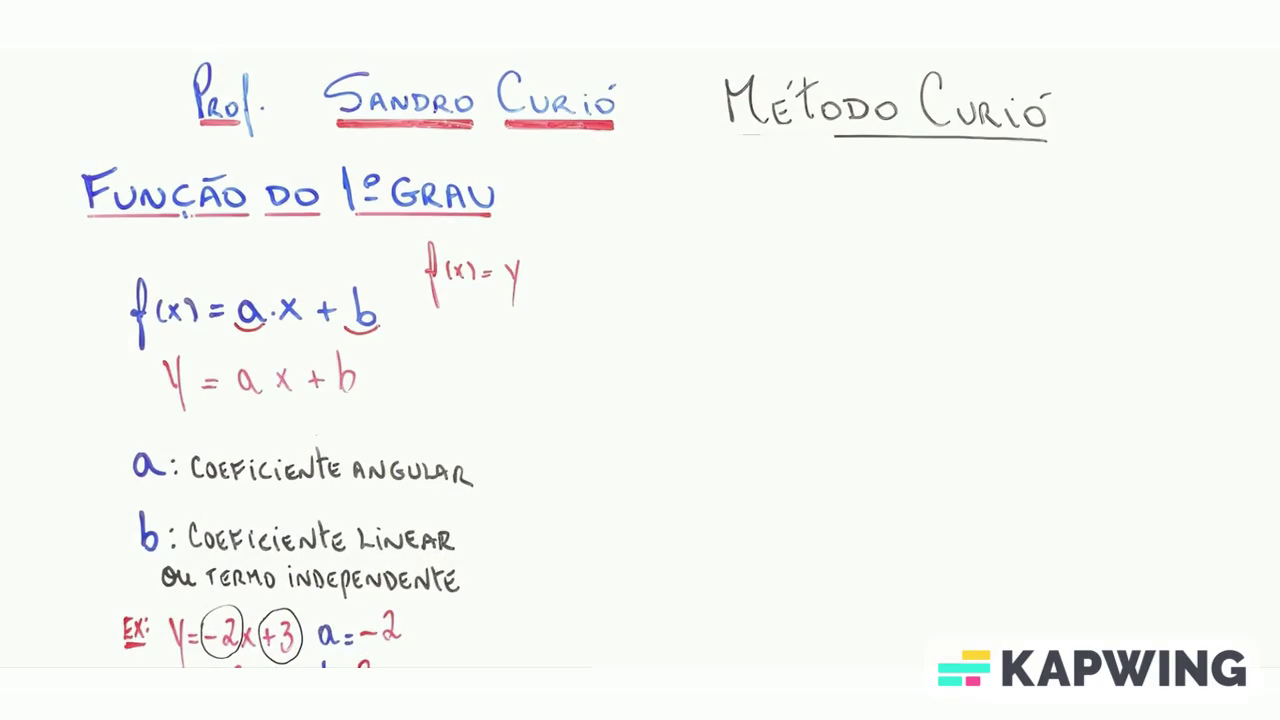 Prof. SANDRO CURIÓ
MÉTODO CURIÓ
FUNÇÃO DO 1º GRAU
f(x) = y
f(x) = a.x + b
y = ax + b
a: COEFICIENTE ANGULAR
b: COEFICIENTE LINEAR
OU TERMO INDEPENDENTE
EX: y = -2x +3 a = -2
KAPWING